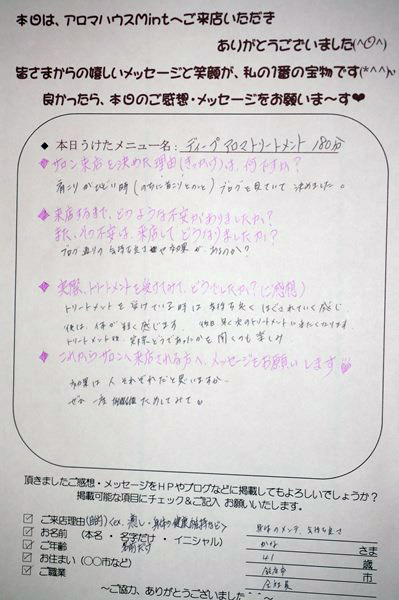 本日は、アロマハウスMintへご来店いただき
ありがとうございました(^O^)
皆さまからの嬉しいメッセージと笑顔が、私の1番の宝物です(*^^*)
良かったら、本日のご感想・メッセージをお願いま～す♥
◆ 本日うけたメニュー名: ディープアロマトリートメント 180分
◆ サロン来店を決めた理由(きっかけ)は、何ですか?
肩こりがひどい時 ブログを見ていて決めました。
◆ 来店するまで、どのような不安がありましたか?
また、その不安は、来店してどうなりましたか?
ブログ通りの気持ち良さや効果があるのか?
◆ 実際、トリートメントを受けてみて、どうでしたか?(ご感想)
トリートメントを受けている時は気持ち良くほぐされていく感じ
後は、体が軽く感じます。 後日、又次のトリートメントに来たくなります。
トリートメント後、実際どうであったかを聞くのも楽しみ
◆ これからサロンへ来店される方へ、メッセージをお願いします♥
効果は人それぞれだと思いますが…
ぜひ一度 ためしてみて。
頂きましたご感想・メッセージをHPやブログなどに掲載してもよろしいでしょうか?
掲載可能な項目にチェック&ご記入 お願いいたします。
☑ ご来店理由(目的)<ex.癒し・身体の健康維持など> 身体のメンテ、気持ち良さ
☑ お名前 (本名・名字だけ・イニシャル) かな さま
☑ ご年齢 名前だけ 41 歳
☑ お住まい (〇〇市など) 市
☑ ご職業 会社員
～ご協力、ありがとうございました～